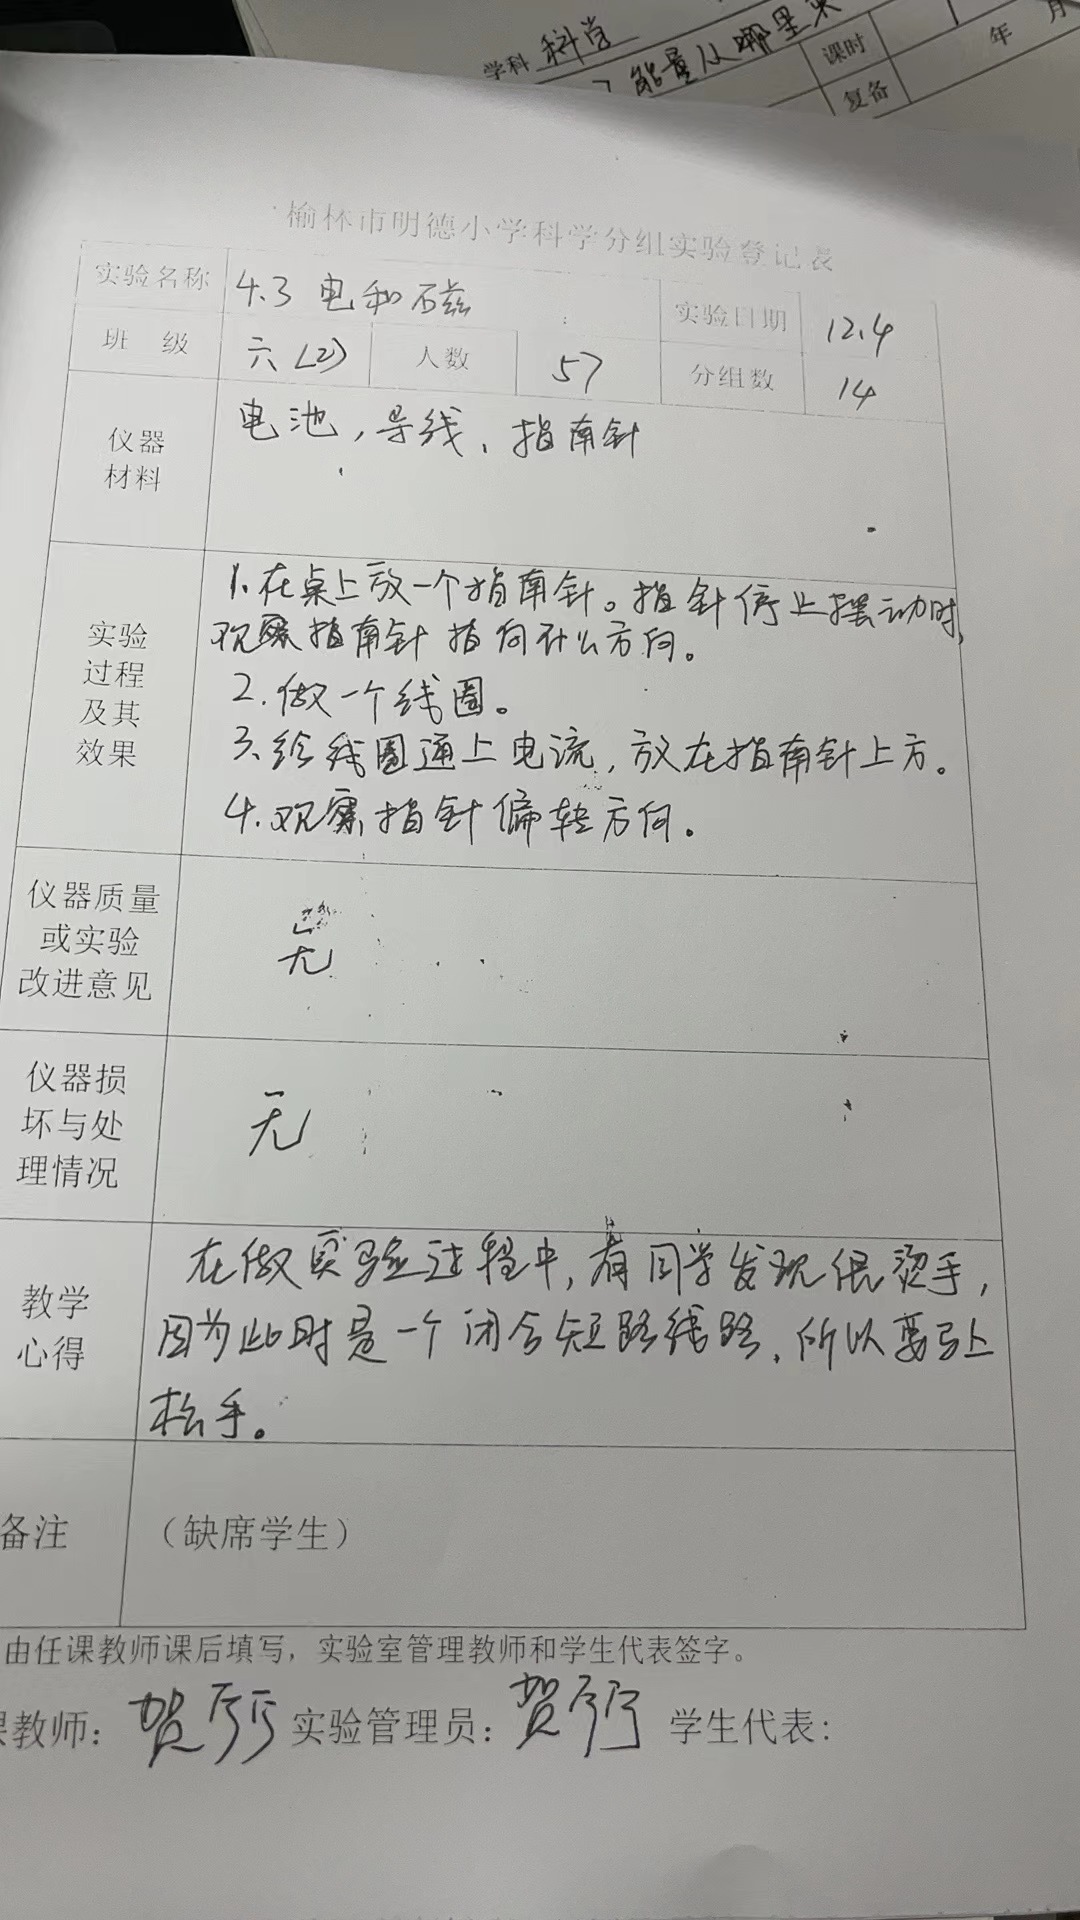 学科 科学
能量从哪里来 课时
复备 年 月
榆林市明德小学科学分组实验登记表
实验名称 4.3 电和磁 实验日期 12.4
班 级 六(2) 人数 57 分组数 14
仪器材料 电池,导线、指南针
实验过程及其效果
1.在桌上放一个指南针。指针停止摆动时,
观察指南针指向什么方向。
2.做一个线圈。
3.给线圈通上电流,放在指南针上方。
4.观察指针偏转方向。
仪器质量或实验改进意见 无
仪器损坏与处理情况 无
教学心得
在做实验过程中,有同学发现很烫手,
因为此时是一个闭合短路线路,所以要马上
松手。
备注 (缺席学生)
由任课教师课后填写,实验室管理教师和学生代表签字。
课教师: 贺 实验管理员: 贺 学生代表: